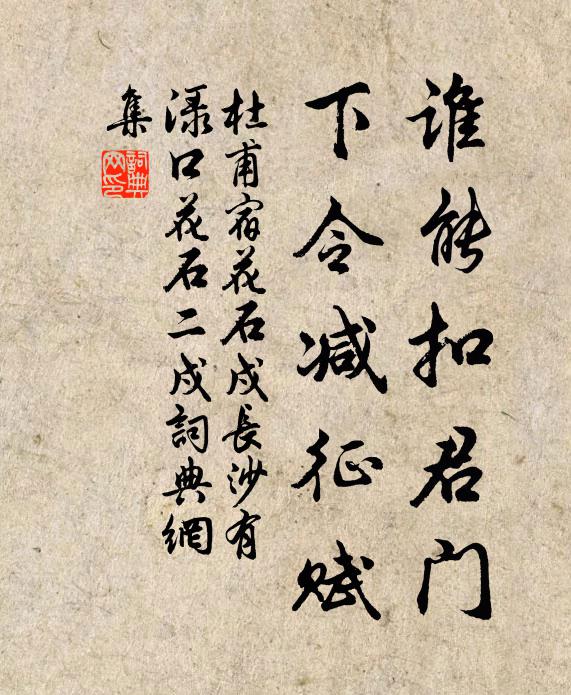 谁能扣君门
下令减征赋
杜甫宿花石戍長沙有
渌口花石二戍詞典網
集
詞典网印